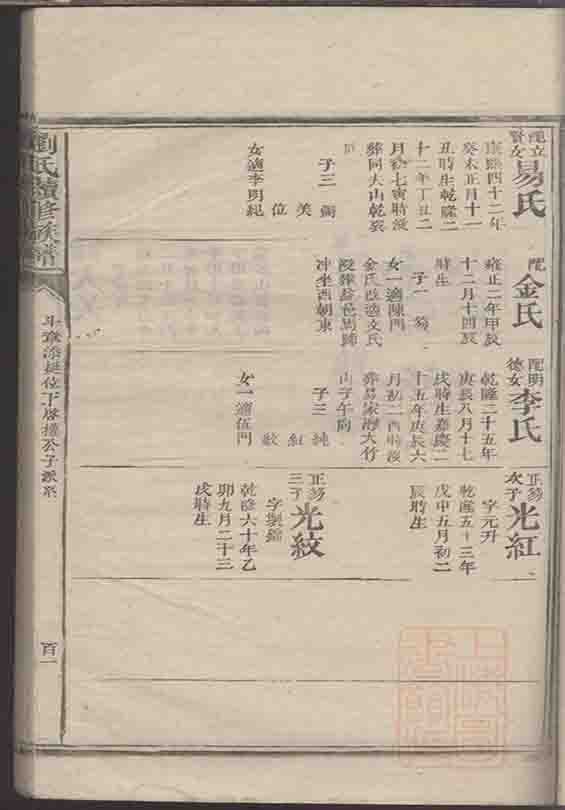 配立
賢女
易氏
康熙四十二年
癸未正月十一
丑時生乾隆二
十二年丁丑二
月初七寅時沒
葬同大山乾亥
子三
美
位
女適李明紀
配
金氏
雍正二年甲辰
十二月十四辰
時生
子一
女一適陳門
金氏改適文氏
沖坐酉朝東
配明
德女
李氏
乾隆二十五年
庚辰八月十七
戌時生嘉慶二
十五年庚辰六
月初二酉時沒
葬易家灣大竹
山子午向
子三
純
紅
紋
女一適伍門
次子
光紅
字元升
乾隆五十三年
戊申五月初二
辰時生
三子
光紋
字製錦
乾隆六十年乙
卯九月二十三
戌時生
劉氏續修族譜
位下啓權公子派系
百一